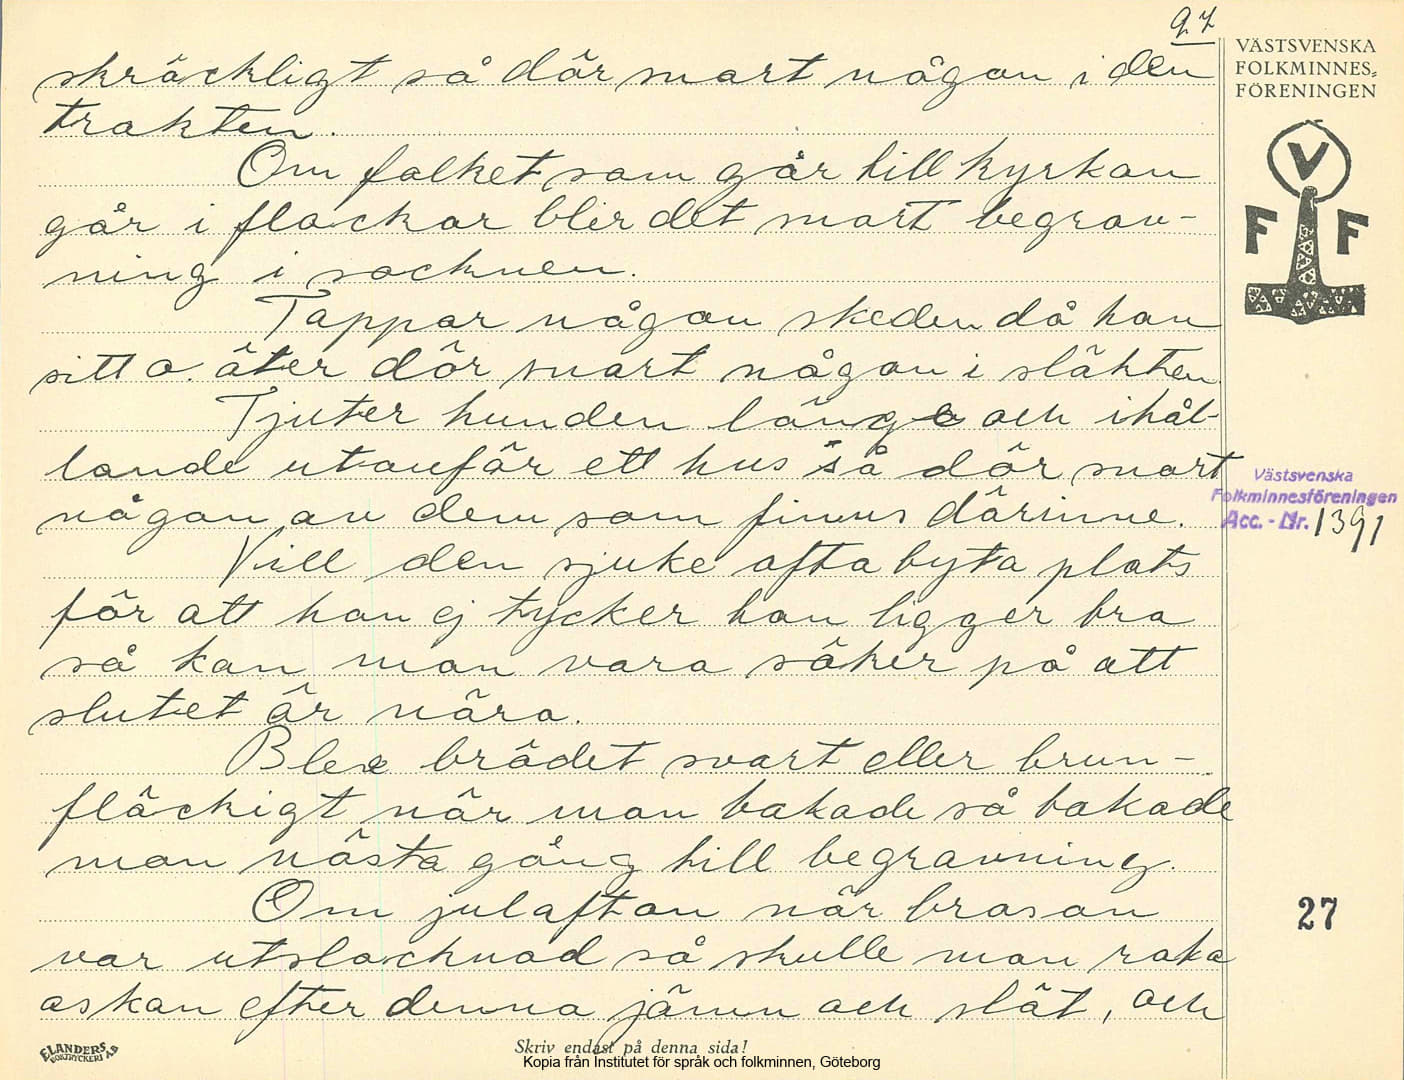 27
skräckligt så dör snart någon i den
trakten.
Om folket som går till kyrkan
går i flockar blir det snart begrav-
ning i socknen.
Tappar någon skeden då han
sitt o. äter dör snart någon i släkten
Tjuter hunden länge och ihål-
lande utanför ett hus så dör snart
någon av dem som finns därinne.
Vill den sjuke ofta byta plats
för att han ej tycker han ligger bra
så kan man vara säker på att
slutet är nära.
Blev brödet svart eller brun-
fläckigt när man bakade så bakade
man nästa gång till begravning.
Om julafton när brasan
var utslocknad så skulle man raka
askan efter denna jämn och slät, och
VÄSTSVENSKA
FOLKMINNES-
FÖRENINGEN
V
F F
Västsvenska
Folkminnesföreningen
Acc. - Nr. 1391
27
ELANDERS
BOKTRYCKERI AB
Skriv endast på denna sida!
Kopia från Institutet för språk och folkminnen, Göteborg